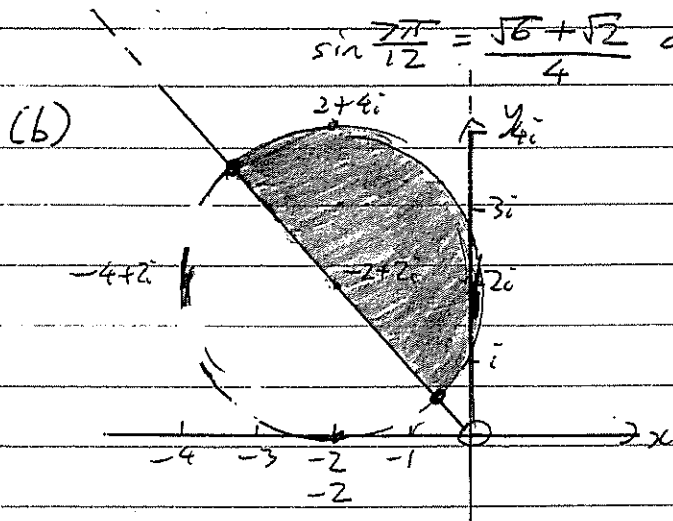 sin 7π/12 = (√6 + √2)/4
(b)
2+4i
y
4i
3i
-4+2i
-2+2i
2i
i
-4 -3 -2 -1 x
-2